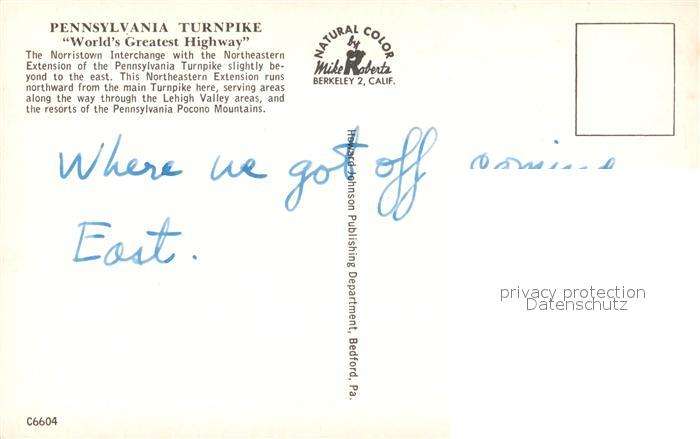 PENNSYLVANIA TURNPIKE
"World's Greatest Highway"
The Norristown Interchange with the Northeastern
Extension of the Pennsylvania Turnpike slightly be-
yond to the east. This Northeastern Extension runs
northward from the main Turnpike here, serving areas
along the way through the Lehigh Valley areas, and
the resorts of the Pennsylvania Pocono Mountains.
NATURAL COLOR
by
Mike Roberts
BERKELEY 2, CALIF.
Where we got off coming
East.
Howard Johnson Publishing Department, Bedford, Pa.
privacy protection
Datenschutz
C6604